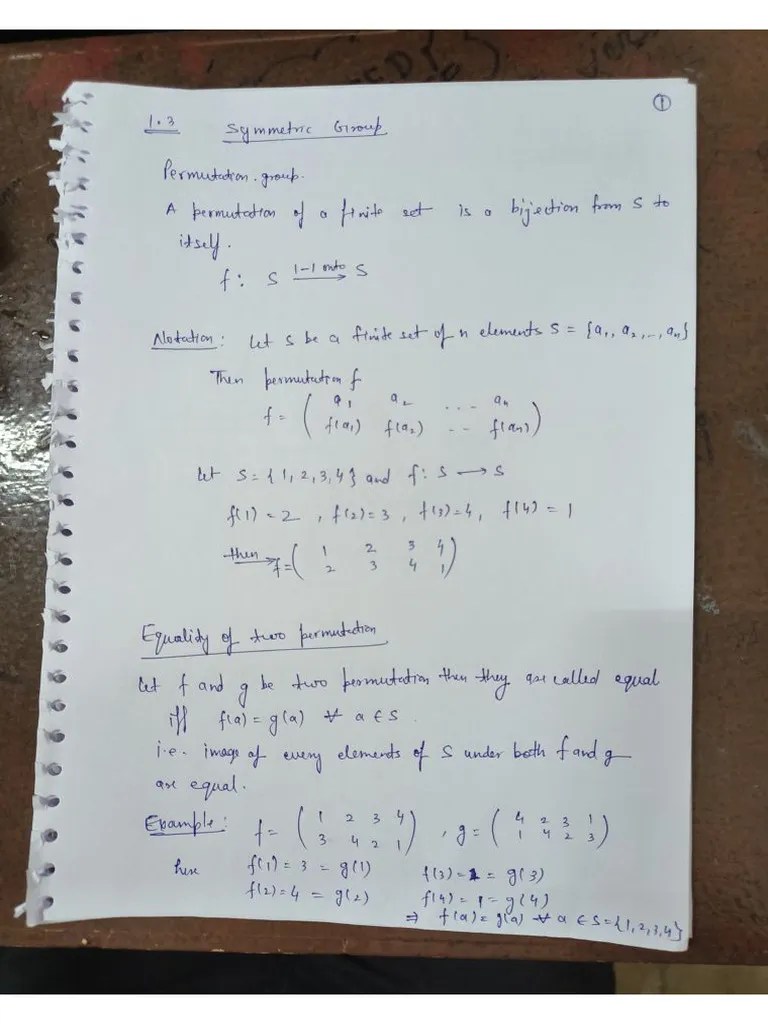 ①
1.3 Symmetric Group
Permutation group.
A permutation of a finite set is a bijection from S to
itself.
f: S 1-1 onto → S
Notation: Let S be a finite set of n elements S = {a₁, a₂, .., aₙ}
Then permutation f
f = ( a₁ a₂ ... aₙ
f(a₁) f(a₂) -- f(an) )
Let S = {1, 2, 3, 4} and f: S → S
f(1) = 2 , f(2) = 3 , f(3) = 4, f(4) = 1
then → f = ( 1 2 3 4
2 3 4 1 )
Equality of two permutation
Let f and g be two permutation then they are called equal
iff f(a) = g(a) ∀ a ∈ S.
i.e. image of every elements of S under both f and g
are equal.
Example: f = ( 1 2 3 4 , g = ( 4 2 3 1
3 4 2 1 ) 1 4 2 3 )
here f(1) = 3 = g(1) f(3) = = g(3)
f(2) = 4 = g(2) f(4) = 1 = g(4)
⇒ f(a) = g(a) ∀ a ∈ S = {1, 2, 3, 4}